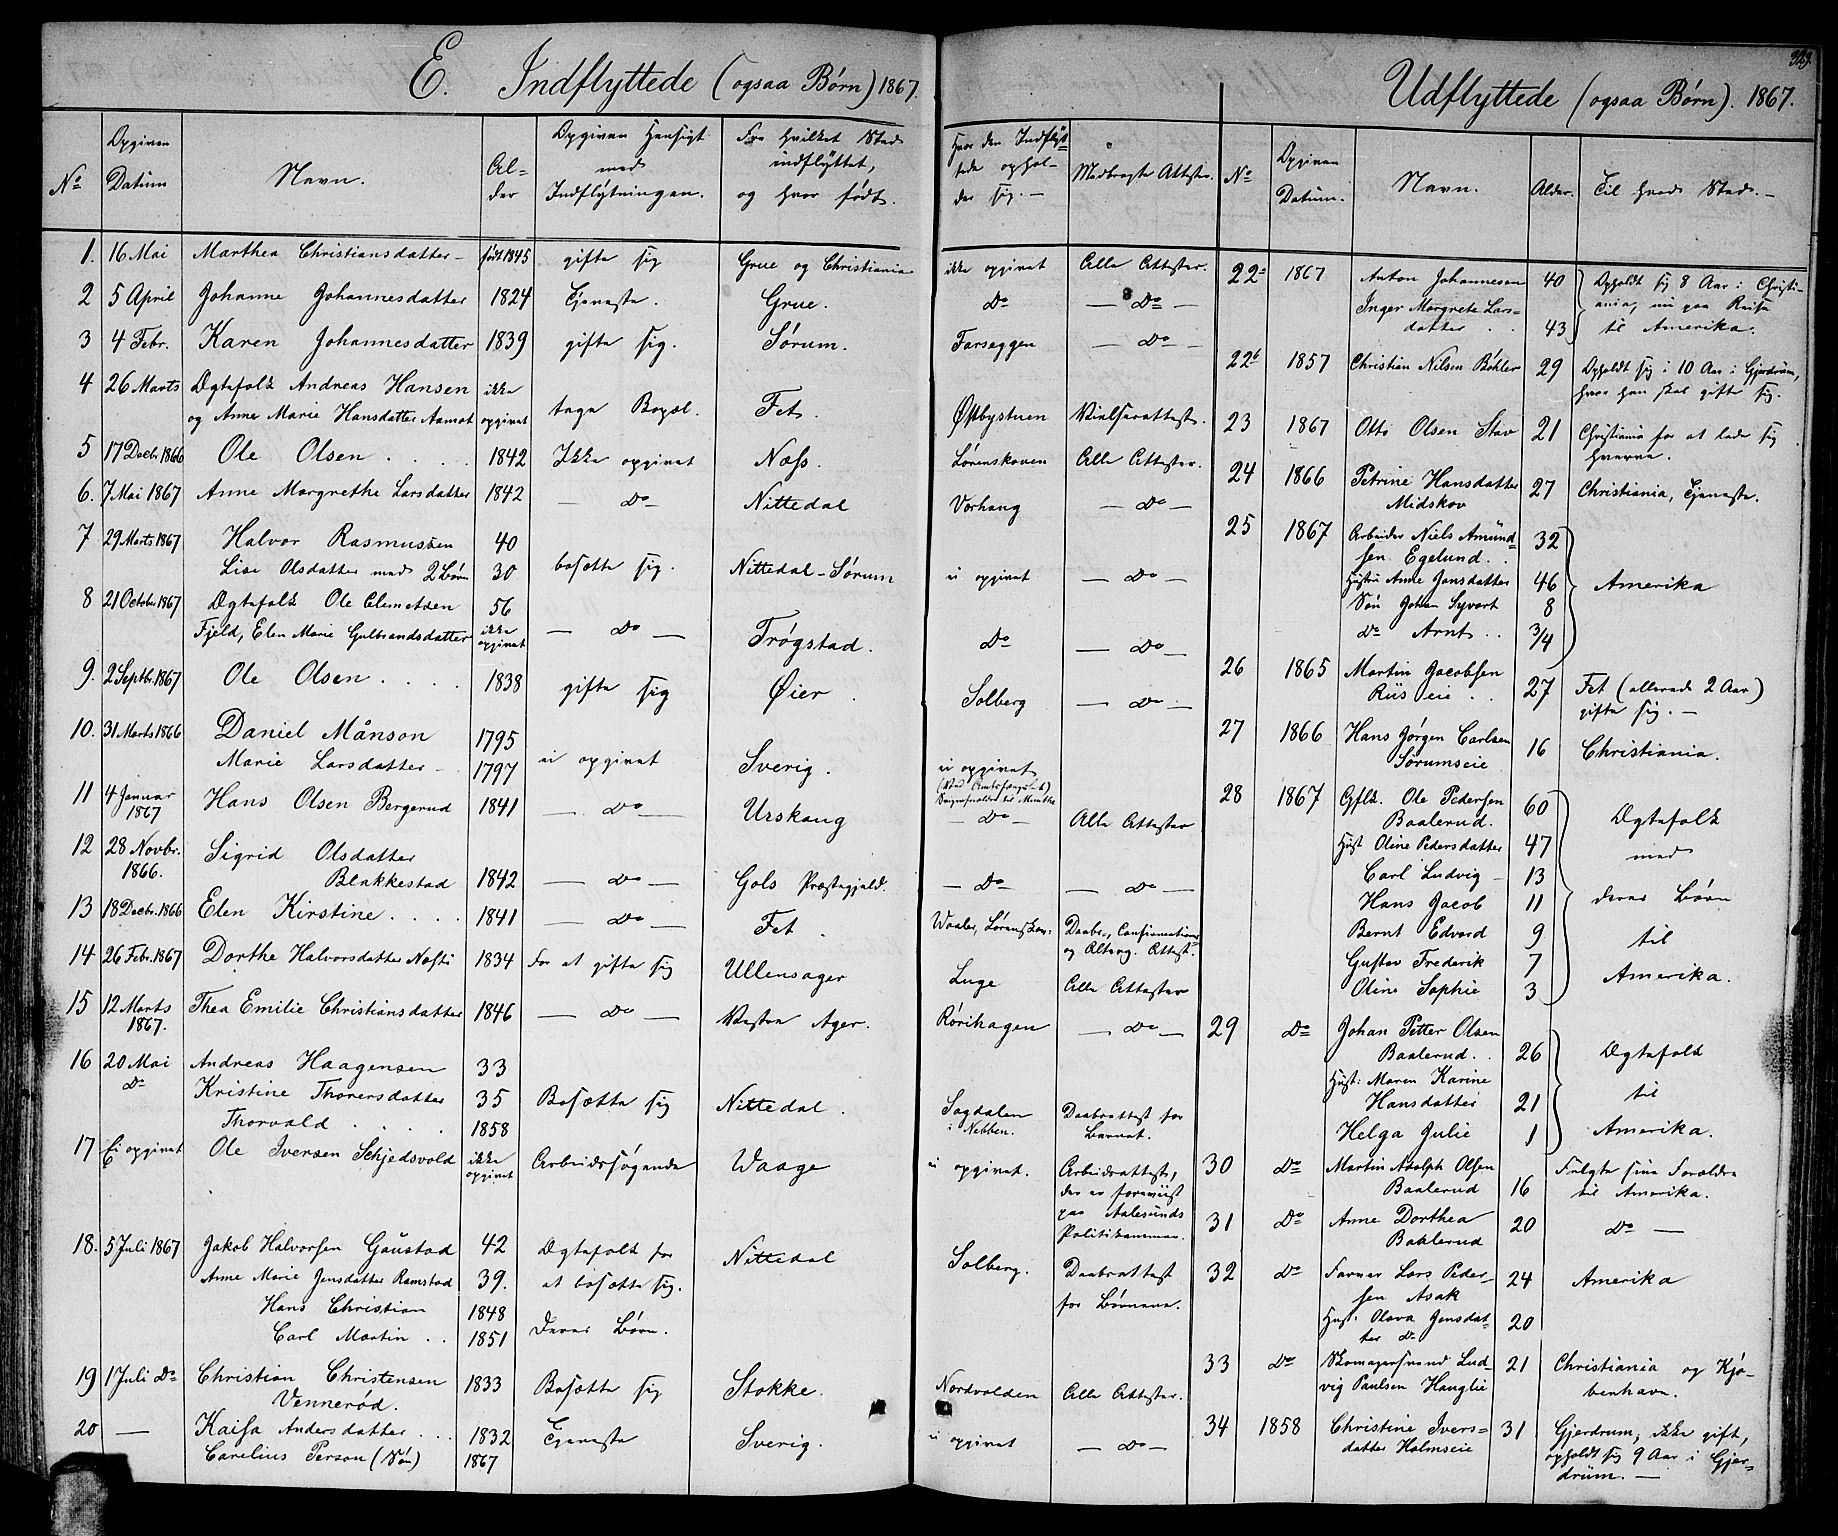 E. Indflyttede (ogsaa Børn) 1867.
No
Opgiven Datum
Navn.
Alder
Opgiven Hensigt med Indflytningen.
Fra hvilket Sted indflyttet, og hvor født.
Hvor den Indflyttede opholder sig.—
Medbragte Attester.
1. 16 Mai Marthea Christiansdatter født 1845 gifte sig Grue og Christiania ikke opgivet Alle Attester.
2 5 April Johanne Johannesdatter 1824 Tjeneste. Grue. Do — Do —
3 4 Febr. Karen Johannesdatter 1839 gifte sig. Sørum. Farseggen — Do —
4 26 Marts Ægtefolk Andreas Hansen ikke
og Anne Marie Hansdatter Aamot opgivet tage Bopæl. Fet. Østbystuen Vielsesattest.
5 17 Decbr 1866 Ole Olsen . . . . 1842 Ikke opgivet Næss. Lørenskoven Alle Attester.
6. 7 Mai 1867 Anne Margrethe Larsdatter 1842 — Do — Nittedal Vorhaug — Do —
7 29 Marts 1867 Halvor Rasmussen 40
Lise Olsdatter med 2 Børn 30 bosætte sig. Nittedal - Sørum ei opgivet — Do —
8 21 October 1867 Ægtefolk Ole Clemetsen 56
Fjeld, Elen Marie Gulbrandsdatter ikke opgivet — Do — Trøgstad. Do — Do —
9. 2 Septbr. 1867 Ole Olsen . . . . 1838 gifte sig Øier. Solberg — Do —
10. 31 Marts 1866 Daniel Månson 1795
Marie Larsdatter 1797 ei opgivet Sverig. ei opgivet
11 4 Januar 1867 Hans Olsen Bergerud 1841 — Do — Urskoug — Do — Alle Attester
12 28 Novbr. 1866. Sigrid Olsdatter
Blakkestad 1842 — Do — Gols Præstegjeld. — Do — — Do —
13 18 Decbr. 1866 Elen Kirstine . . . . 1841 — Do — Fet. Waaler, Lørenskov: Daabs-, Confirmations-
og Altang. Attest.
14 26 Febr. 1867 Dorthe Halvorsdatter 1834 For at gifte sig Ullensager Luge Alle Attester
15 12 Marts 1867. Thea Emilie Christiansdatter 1846 — Do — Vestre Ager. Rørihagen — Do —
16 20 Mai Do Andreas Haagensen 33
Kristine Thorersdatter 35 Bosætte sig Nittedal. Sagdalen i Nebben. Daabsattest for Barnet.
Thorvald . . . . 1858
17 Ei opgivet Ole Iversen Schjedsvold ikke opgivet Arbeidssøgende Waage ei opgivet. Arbeidsattest,
der er foreviist
paa Aalesunds
Politikammer.
18. 5 Juli 1867 Jakob Halvorsen Gaustad 42 Ægtefolk for Nittedal Solberg. Daabsattest
Anne Marie Jensdatter Ramstad 39. at bosætte sig. for Børnene.
Hans Christian 1848
Carl Martin . . 1851 Deres Børn.
19 1 Juli Do Christian Christensen
Vennerød. 1833 Bosætte sig Stokke. Nordvolden Alle Attester.
20 — Kaisa Andersdatter . . . 1832 Tjeneste Sverig. ei opgivet — Do —
Carelius Person (Søn) 1867
Udflyttede (ogsaa Børn). 1867.
329.
No
Opgiven Datum.
Navn.
Alder.
Til hvad Sted.—
22a 1867 Anton Johannesen 40 Opholdt sig 8 Aar i Christi-
Inger Margrete Lars- ania, nu paa Reise
datter . . 43 til Amerika.
22b 1857 Christian Nilsen Bøhler 29 Opholdt sig i 10 Aar i Gjerdrum,
hvor han skal gifte sig.
23 1867 Otto Olsen Stav 21 Christiania for at lade sig
hverve.
24 1866 Petrine Hansdatter
Midskov 27 Christiania, Tjeneste.
25 1867 Arbeider Niels Amund-
sen Egelund. . 32
Hustru Anne Jensdatter 46 Amerika
Søn Johan Syvert 8
do Arnt . . 3/4
26 1865 Martin Jacobsen
Riis eie . . 27 Fet (allerede 2 Aar)
gifte sig.—
27 1866 Hans Jørgen Carlsen
Sørumseie 16 Christiania.
28 1867 Gflk. Ole Pedersen
Baalerud. 60 Ægtefolk
Hust Oline Pedersdatter 47 med
Carl Ludvig 13
Hans Jacob 11 deres Børn
Bernt Edvard 9 til
Gustav Frederik 7 Amerika.
Oline Sophie 3
29 Do Johan Petter Olsen
Baalerud. . 26 Ægtefolk
Hust: Maren Karine
Hansdatter 21 til
Helga Julie 1 Amerika.
30 Do Martin Adolph Olsen
Baalerud 16 Fulgte sine Forældre
til Amerika.
31 Do Anne Dorthea
Baalerud 20 Do —
32 Do Farver Lars Peder-
sen Asak 24 Amerika
Hust. Olava Jensdat-
ter do 20
33 Do Skomagersvend Lud-
vig Paulsen Hauglie 21 Christiania og Kjø-
benhavn.
34 1858 Christine Ivers-
datter Holmseie 31 Gjerdrum, ikke gift,
opholdt sig 9 Aar i Gjer-
drum. —